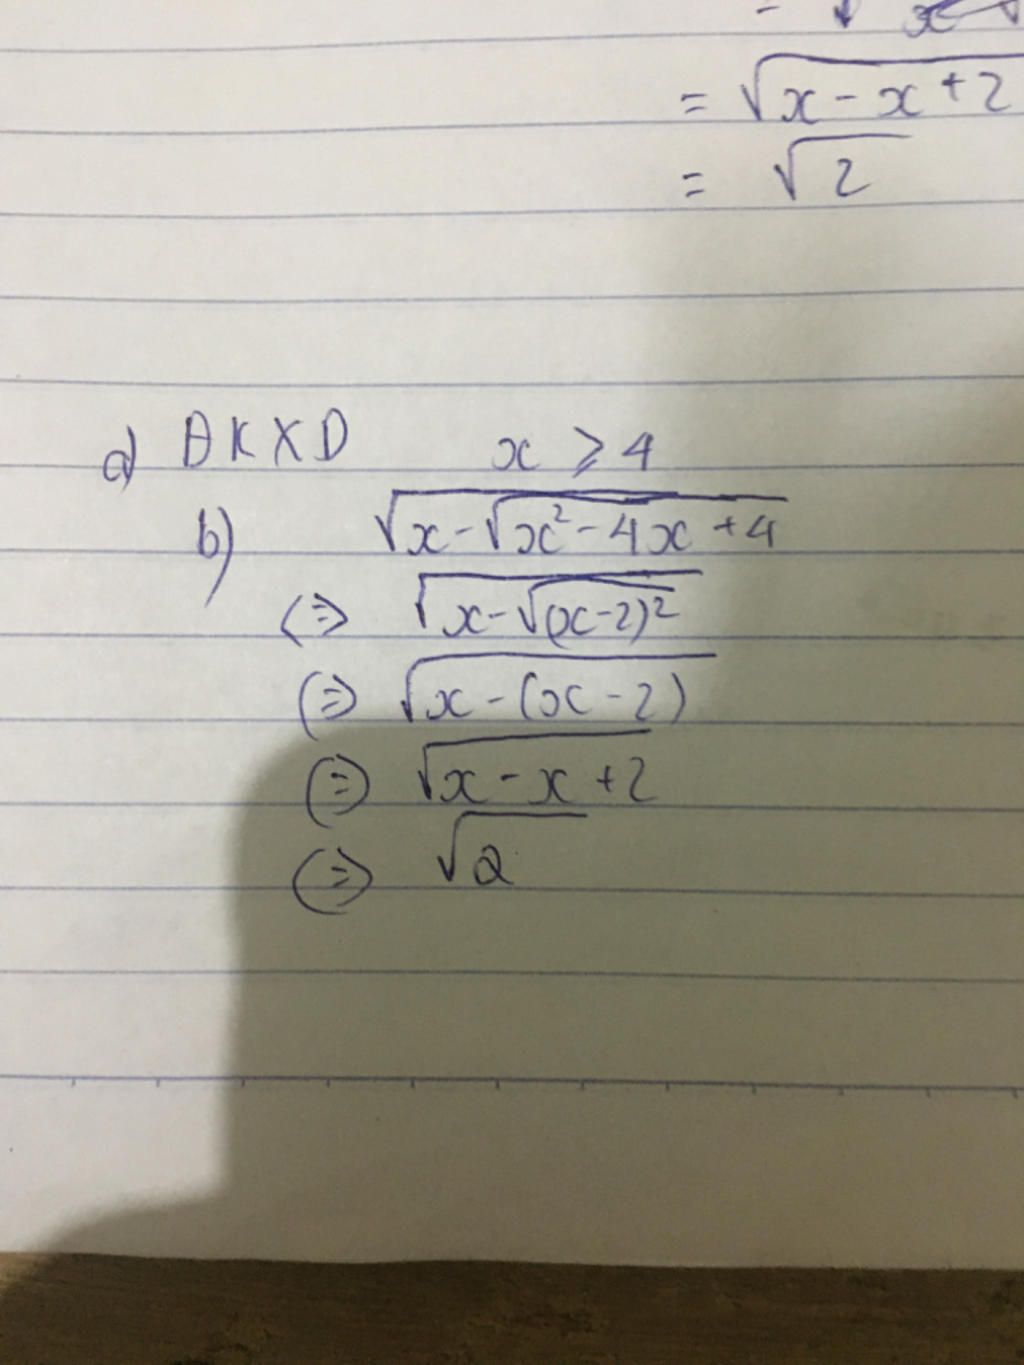 = √x - x + 2
= √2
a) ĐKXD x ≥ 4
b) √x - √x² - 4x + 4
<=> √x - √(x - 2)²
<=> √x - (x - 2)
<=> √x - x + 2
<=> √2